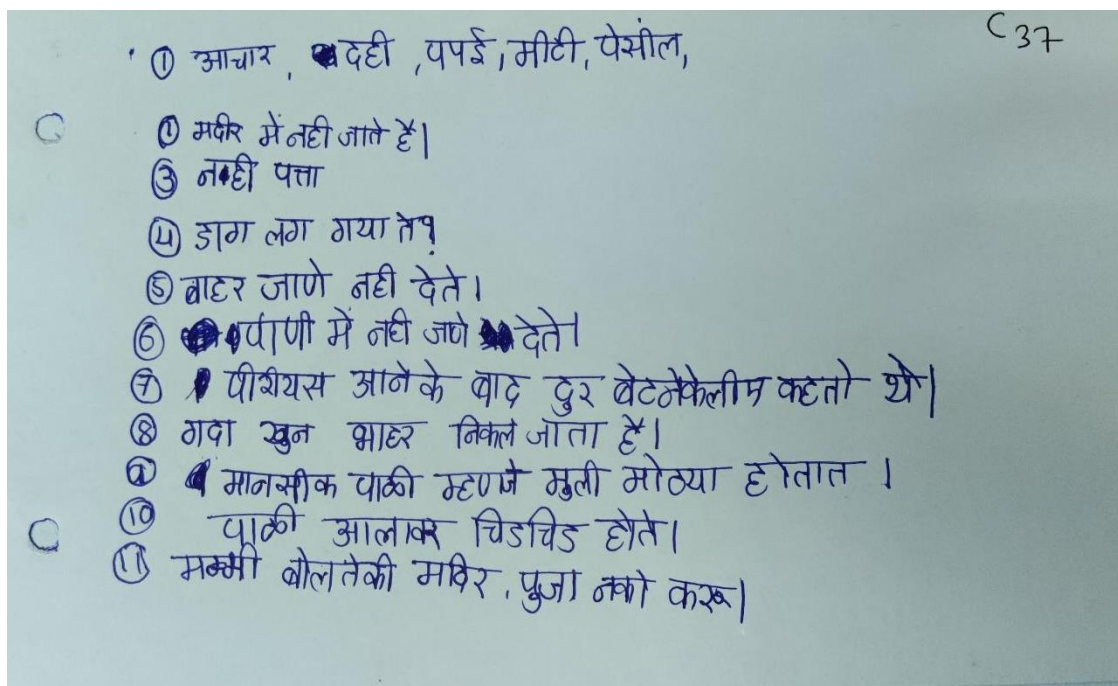 C37
① आचार, दही, पपई, मीटी, पेसील,
① मदीर में नही जाते है।
③ नही पत्ता
④ डाग लग गया ते?
⑤ बाहर जाणे नही देते।
⑥ पाणी में नही जाणे देते।
⑦ पीरीयस आने के बाद दुर बेटनेकेलीए कहतो थे।
⑧ गदा खुन भाहर निकल जाता है।
⑨ मानसीक पाळी म्हणजे मुली मोठया होतात।
⑩ पाळी आलावर चिडचिड होते।
⑪ मम्मी बोलतेकी मदिर, पुजा नको करू।